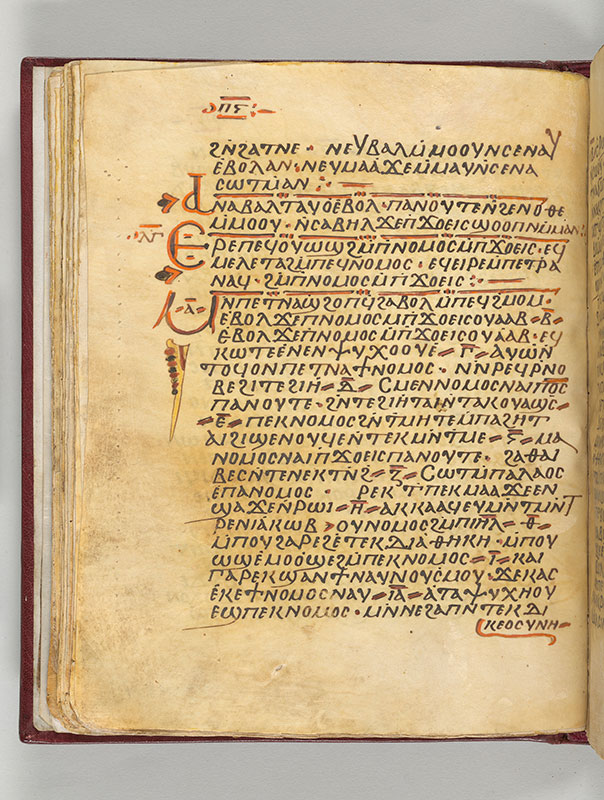 ⲡⲋ
ϩⲛ̄ϩⲁⲧⲛⲉ · ⲛⲉⲩⲃⲁⲗⲙ̄ⲙⲟⲟⲩⲛⲥⲉⲛⲁⲩ
ⲉⲃⲟⲗⲁⲛ · ⲛⲉⲩⲙⲁⲁϫⲉⲙ̄ⲙⲁⲩⲛ̄ⲥⲉⲛⲁ
ⲥⲱⲧⲙ̄ⲁⲛ :
ⲁⲛⲁⲃⲁⲗⲧⲁⲩⲟⲉⲃⲟⲗ · ⲡⲁⲛⲟⲩⲧⲉⲛ̄ϩⲉⲛⲟϭⲉ
ⲙ̄ⲙⲟⲟⲩ · ⲛ̄ⲥⲁⲃⲏⲗϫⲉⲡ̄ϫⲟⲉⲓⲥϣⲟⲟⲡⲛⲙ̄ⲙⲁⲛ :
ⲗⲅ
ⲉⲣⲉⲡⲉϥⲟⲩⲱϣϩⲙ̄ⲡⲛⲟⲙⲟⲥⲙ̄ⲡϫⲟⲉⲓⲥ · ⲉϥ
ⲙⲉⲗⲉⲧⲁϩⲙ̄ⲡⲉϥⲛⲟⲙⲟⲥ · ⲉϥⲉⲓⲣⲉⲙ̄ⲡⲉⲧⲣⲁ
ⲛⲁϥ · ϩⲙ̄ⲡⲛⲟⲙⲟⲥⲙ̄ⲡϫⲟⲉⲓⲥ :
ⲁ̄ ⲙⲛⲡⲉⲧⲛⲁϣϩⲟⲡϥϩⲁⲃⲟⲗⲙ̄ⲡⲉϥϩⲙⲟⲙ ·
ⲉⲃⲟⲗϫⲉⲡⲛⲟⲙⲟⲥⲙ̄ⲡϫⲟⲉⲓⲥⲟⲩⲁⲁⲃ · ⲃ̄
ⲉⲃⲟⲗϫⲉⲡⲛⲟⲙⲟⲥⲙ̄ⲡϫⲟⲉⲓⲥⲟⲩⲁⲁⲃ · ⲉϥ
ⲕⲱⲧⲉⲉⲛⲉⲛⲯⲩⲭⲟⲟⲩⲉ ⲅ̄ ⲁⲩⲱⲛ̄
ⲧⲟϥⲟⲛⲡⲉⲧⲛⲁϯⲛⲟⲙⲟⲥ · ⲛⲛ̄ⲣⲉϥⲣ̄ⲛⲟ
ⲃⲉϩⲓⲧⲉϩⲓⲏ ⲇ̄ ⲥⲙⲉⲛⲛⲟⲙⲟⲥⲛⲁⲓⲡϭⲥ
ⲡⲁⲛⲟⲩⲧⲉ · ϩⲛⲧⲉϩⲓⲏⲧⲁⲓⲛ̄ⲧⲁⲕⲟⲩⲁϣⲥ̄
ⲉ̄ ⲡⲉⲕⲛⲟⲙⲟⲥϩⲛ̄ⲧⲙⲏⲧⲉⲙ̄ⲡⲁϩⲏⲧ
ⲁⲓϫⲓϣⲉⲛⲟⲩϥⲉⲛ̄ⲧⲉⲕⲙⲛ̄ⲧⲙⲉ ⲋ̄ ⲙⲁ
ⲛⲟⲙⲟⲥⲛⲁⲓⲡϫⲟⲉⲓⲥⲡⲁⲛⲟⲩⲧⲉ · ϩⲁⲑⲁⲓ
ⲃⲉⲥⲛ̄ⲧⲉⲛⲉⲕⲧⲛ̄ϩ ⲍ̄ ⲥⲱⲧⲙ̄ⲡⲁⲗⲁⲟⲥ
ⲉⲡⲁⲛⲟⲙⲟⲥ · ⲣⲉⲕⲧⲡⲉⲕⲙⲁⲁϫⲉⲉⲛ
ϣⲁϫⲉⲛ̄ⲣⲱⲓ ⲏ̄ ⲁⲕⲕⲁⲁϥⲉⲩⲙⲛ̄ⲧⲙⲛ̄ⲧ
ⲣⲉⲛⲓⲁⲕⲱⲃ ⲟⲩⲛⲟⲙⲟⲥϩⲙⲡⲓⲏ̄ⲗ ⲑ̄
ⲙ̄ⲡⲟⲩϩⲁⲣⲉϩⲉⲧⲉⲕⲇⲓⲁⲑⲏⲕⲏ · ⲙ̄ⲡⲟⲩ
ⲱϣⲉⲙⲟⲟϣⲉϩⲙ̄ⲡⲉⲕⲛⲟⲙⲟⲥ ⲓ̄ ⲕⲁⲓ
ⲡⲁⲣⲉⲕϣⲁⲛϯⲛⲁⲩⲛⲟⲩⲥⲙⲟⲩ · ϫⲉⲕⲁⲥ
ⲉⲕⲉϯⲛⲟⲙⲟⲥⲛⲁⲩ ⲓ̄ⲁ̄ ⲁⲧⲁⲯⲩⲭⲏⲟⲩ
ⲉϣⲡⲉⲕⲛⲟⲙⲟⲥ · ⲙⲛⲛⲉϩⲁⲡⲛ̄ⲧⲉⲕⲇⲓ
ⲕⲉⲟⲥⲩⲛⲏ